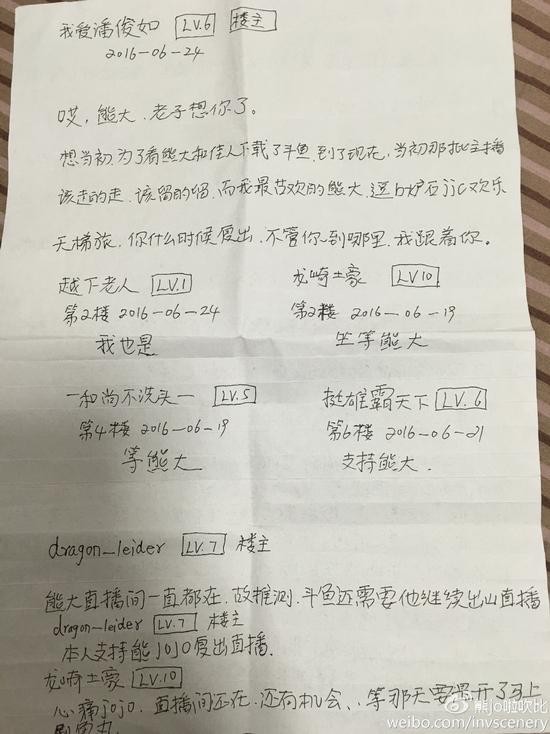 我爱潘俊如 LV.6 楼主
2016-06-24
哎，熊大，老子想你了。
想当初为了看熊大和佳人下载了斗鱼，到了现在，当初那批主播
该走的走，该留的留，而我最喜欢的熊大，还有炉石jjc欢乐
天梯旅，你什么时候复出，不管你到哪里，我跟着你。
越下老人 LV.1
第2楼 2016-06-24
我也是
龙崎土豪 LV10
第2楼 2016-06-19
坐等熊大
一和尚不洗头一 LV.5
第4楼 2016-06-19
等熊大
挺雄霸天下 LV.6
第6楼 2016-06-21
支持熊大.
dragon_leider LV.7 楼主
熊大直播间一直都在，故推测，斗鱼还需要他继续出山直播
dragon_leider LV.7 楼主
本人支持熊JOJO复出直播.
龙崎土豪 LV.10
心痛jojo，直播间还在，还有机会、、等那天要是开了马上
熊jo啦吹比
weibo.com/invscenery